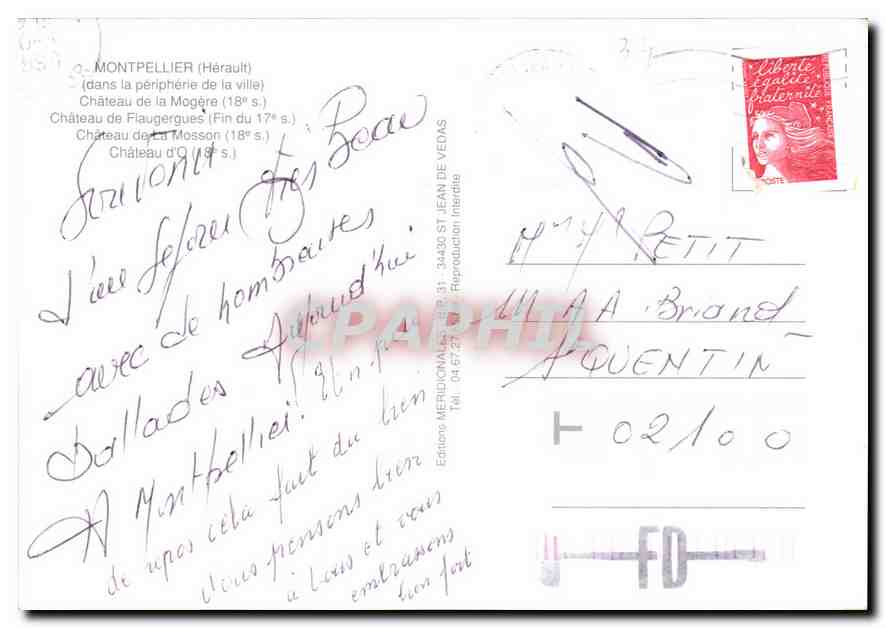 MONTPELLIER (Hérault)
(dans la périphérie de la ville)
Château de la Mogère (18e s.)
Château de Flaugergues (Fin du 17e s.)
Château de La Mosson (18e s.)
Château d'O (18e s.)
très Beau
d'un sejour
avec de nombreuses
Ballades Aujourd'hui
A Montpellier. Un peu
de repos cela fait du bien
Nous pensons bien
à vous et vous
embrassons
bien fort
Editions MERIDIONALES - B.P. 31 - 34430 ST JEAN DE VEDAS
Tél. 04.67.27 Reproduction Interdite
liberté
égalité
fraternité
RÉPUBLIQUE FRANÇAISE
POSTE
PETIT
Av A. Briand
QUENTIN
T 02100
FD
CPAPHIL